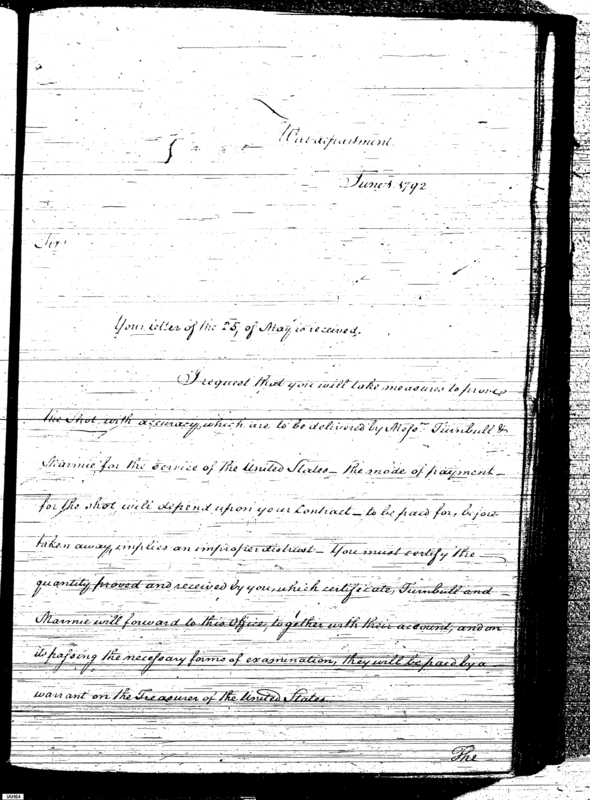 War department
June 1. 1792
Sir
Your letter of the 25, of May is received.
I request that you will take measures to prove
the Shot, with accuracy, which are to be delivered by Messrs. Turnbull &
Marmie for the service of the United States — the mode of payment
for the shot will depend upon your Contract — to be paid for, before
taken away, implies an improper distrust — You must certify the
quantity proved and received by you, which certificate, Turnbull and
Marmie will forward to this Office, together with their account, and on
its passing the necessary forms of examination, they will be paid by a
warrant on the Treasurer of the United States.
The
IAH64